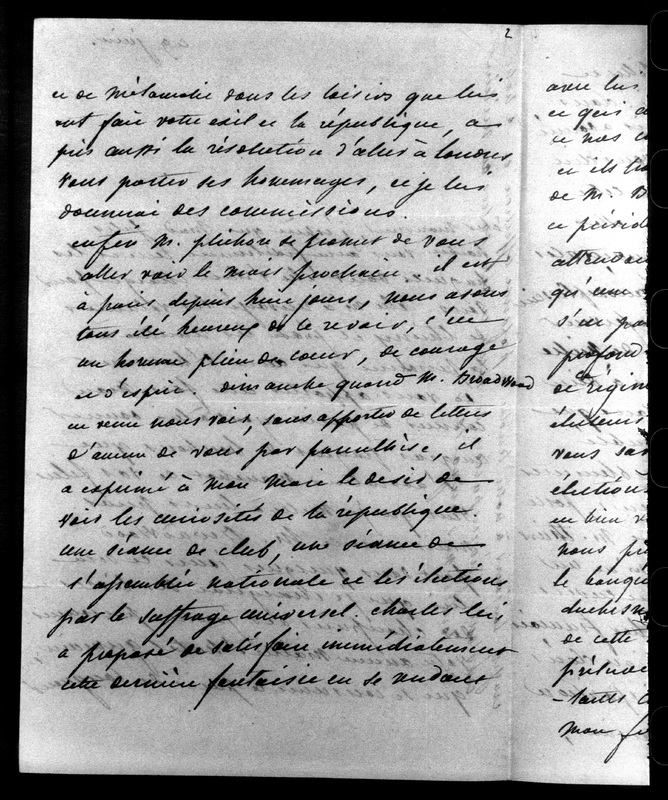 2
et de mélancolie dans les loisirs que lui
ont fait votre exil et la république, a
pris aussi la résolution d'aller à Londres
vous porter ses hommages, et je lui
donnerai des commissions.
enfin M. plichon se promet de vous
aller voir le mois prochain. il est
à paris depuis huit jours, nous avons
tous été heureux de le revoir, c'est
un homme plein de coeur, de courage
et d'esprit. dimanche quand M. Broadwood
est venu nous voir, sans apporter de lettres
d'aucun de vous par parenthèse, il
a exprimé à mon mari le desir de
voir les curiosités de la république.
une séance de club, une séance de
l'assemblée nationale et les élections
par le suffrage universel. charles lui
a proposé de satisfaire immédiatement
cette dernière fantaisie en se rendant
avec lui
ce qui
et nos
et ils
de M. B
ce présid
attendan
qu'une
s'en pa
profond
de régim
électeurs
vous sav
élections
en bien
nous
le banqu
duchesne
de cette
-tants
mon